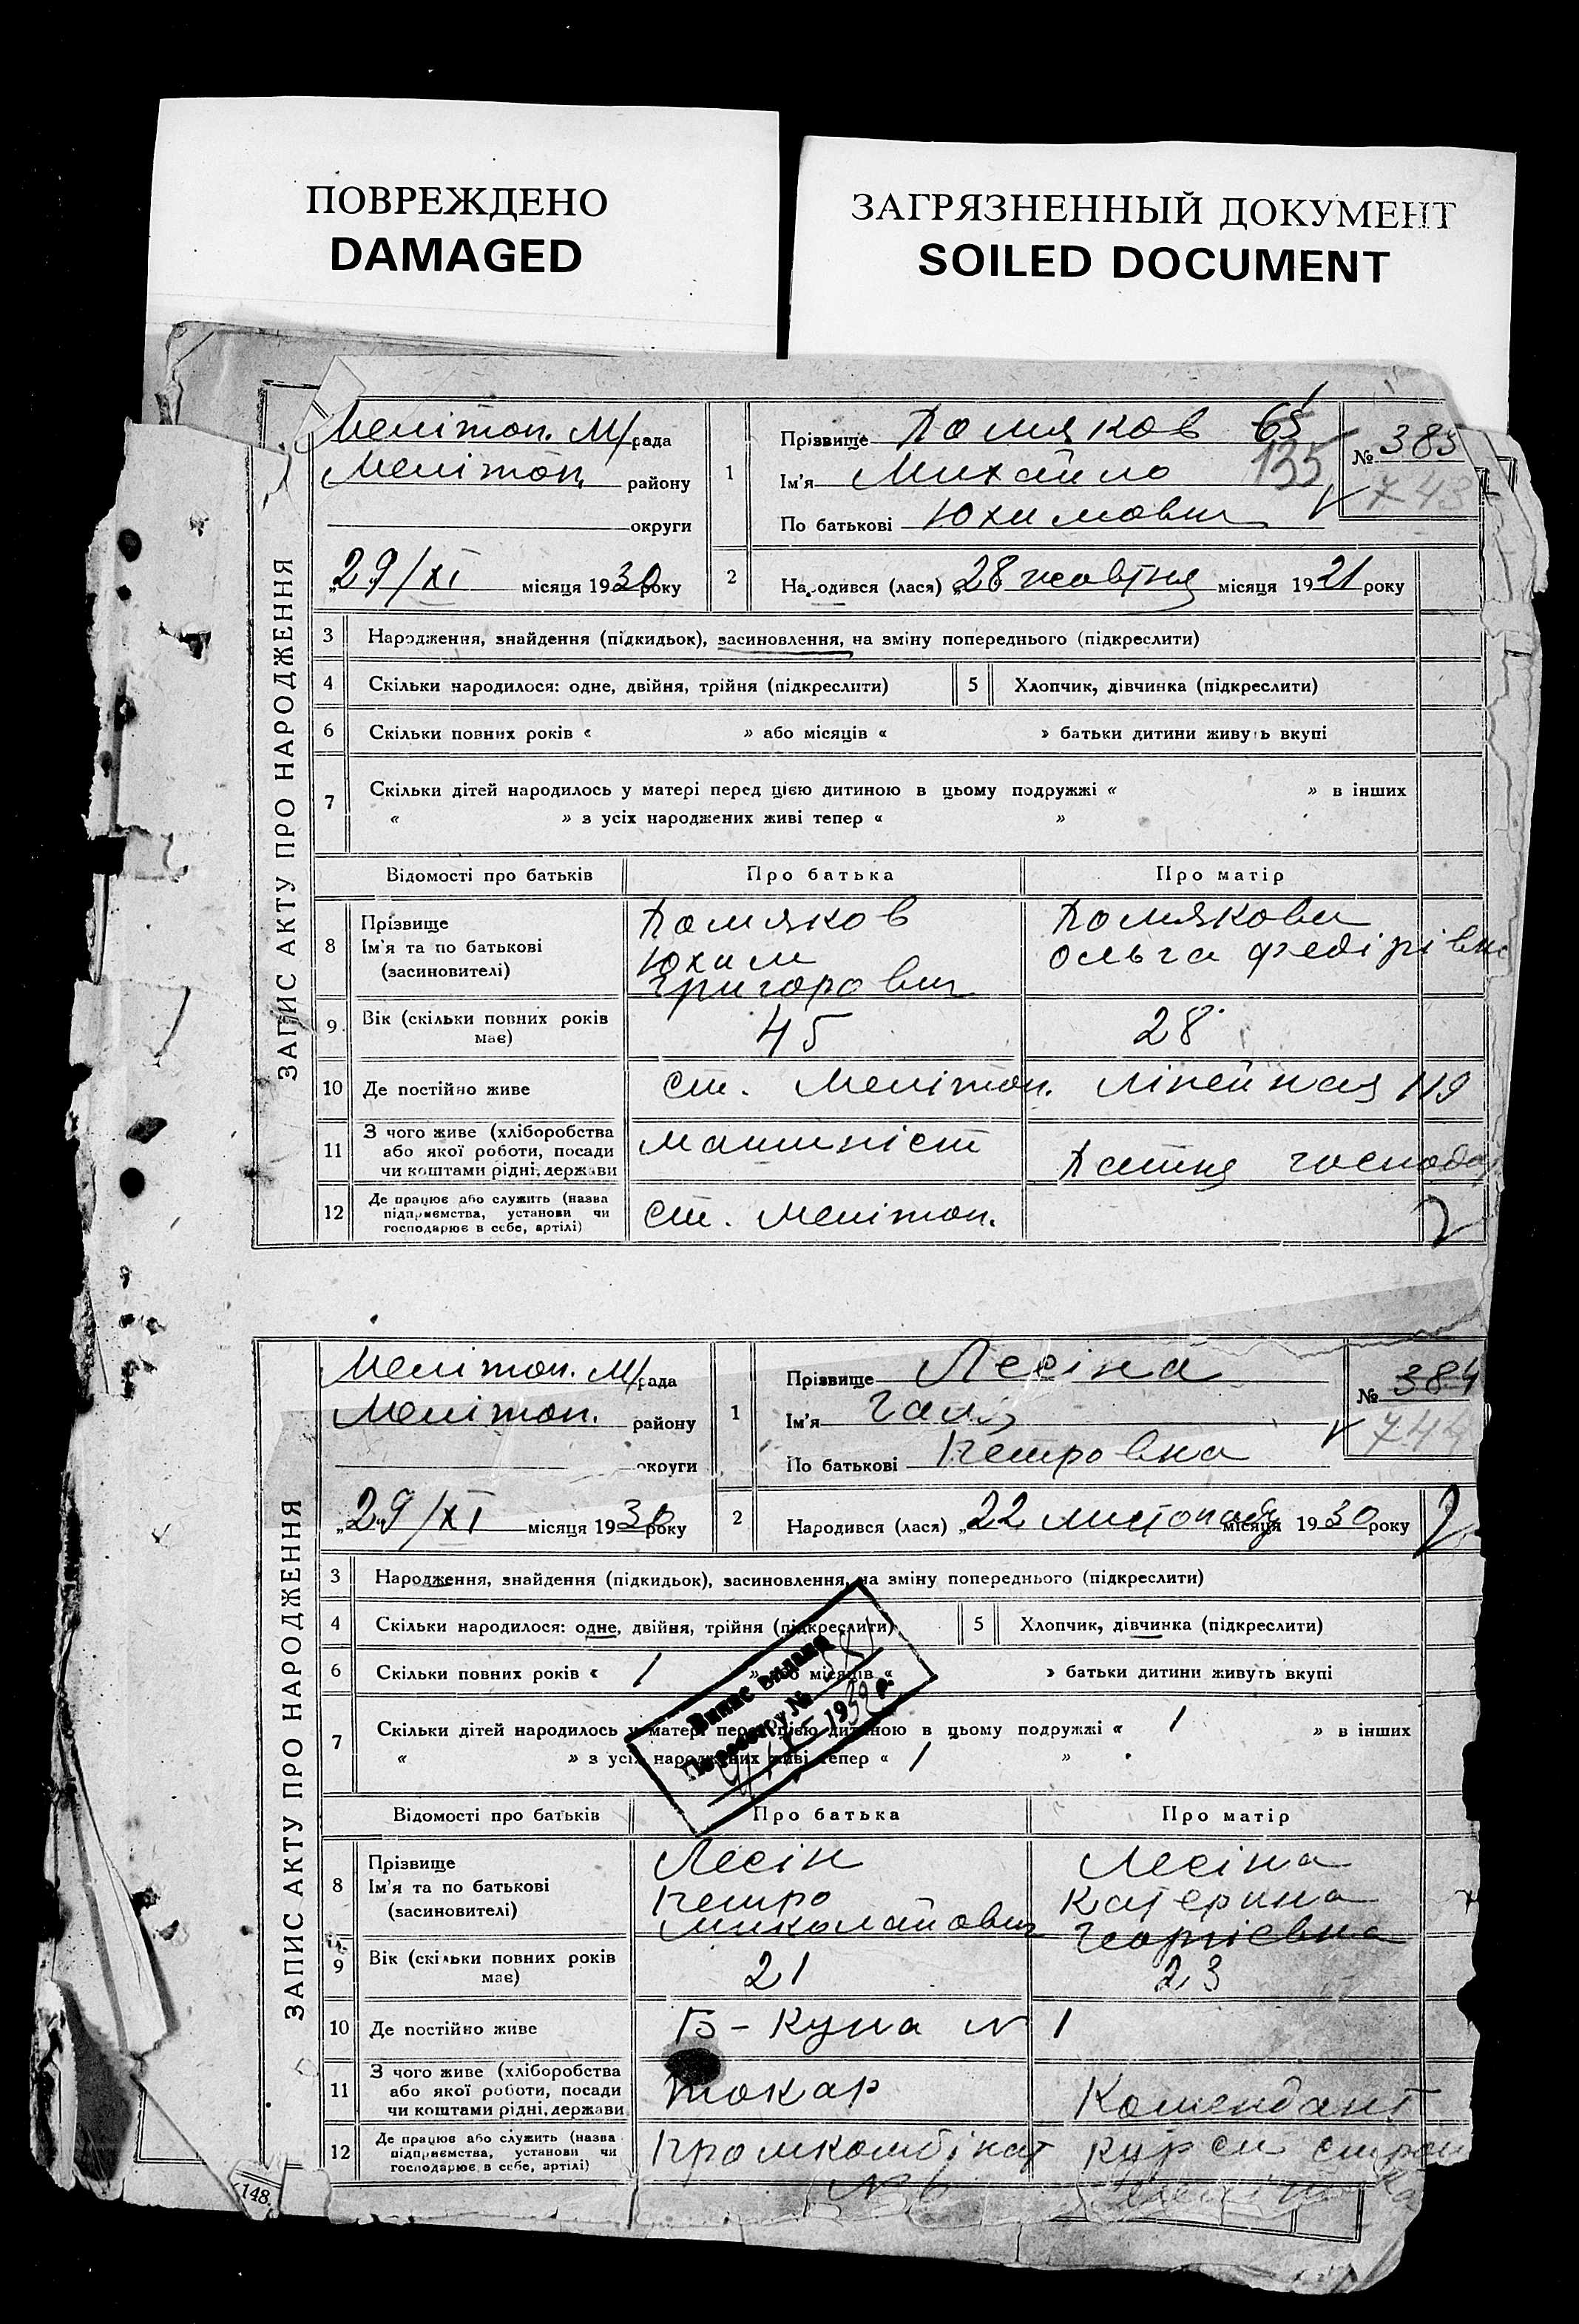 ПОВРЕЖДЕНО
DAMAGED
ЗАГРЯЗНЕННЫЙ ДОКУМЕНТ
SOILED DOCUMENT
ЗАПИС АКТУ ПРО НАРОДЖЕННЯ
Меліт��оп. М/рада
Мелітоп. району
округи
„29/XI місяця 1930 року
1
Прізвище
65
Ім'я Михайло 135
По батькові Юхимович
№ 383
743
2 Народився (лася) „28 жовтня місяця 1921 року
3 Народження, знайдення (підкидьок), засиновлення, на зміну попереднього (підкреслити)
4 Скільки народилося: одне, двійня, трійня (підкреслити) 5 Хлопчик, дівчинка (підкреслити)
6 Скільки повних років « » або місяців « » батьки дитини живуть вкупі
7 Скільки дітей народилось у матері перед цією дитиною в цьому подружжі « » в інших
« » з усіх народжених живі тепер « »
Відомості про батьків Про батька Про матір
8 Прізвище
Ім'я та по батькові
(засиновителі)
Юхим
Григорович
Ольга Федірівна
9 Вік (скільки повних років має) 45 28
10 Де постійно живе ст. Мелітоп. Лінейная 119
11 З чого живе (хліборобства
або якої роботи, посади
чи коштами рідні, держави
машиніст
12 Де працює або служить (назва
підприємства, установи чи
господарює в себе, артілі)
ст. Мелітоп.
ЗАПИС АКТУ ПРО НАРОДЖЕННЯ
Мелітоп. М/рада
Мелітоп. району
округи
„29/XI місяця 1930 року
1
Прізвище Лесіна
Ім'я Галя
По батькові Петровна
№ 384
744
2 Народився (лася) „22 листопаду місяця 1930 року
3 Народження, знайдення (підкидьок), засиновлення, на зміну попереднього (підкреслити)
4 Скільки народилося: одне, двійня, трійня (підкреслити) 5 Хлопчик, дівчинка (підкреслити)
6 Скільки повних років « 1 » або місяців « » батьки дитини живуть вкупі
7 Скільки дітей народилось у матері перед цією дитиною в цьому подружжі « 1 » в інших
« » з усіх народжених живі тепер « 1 »
Випис видана
По реєстру №
Відомості про батьків Про батька Про матір
8 Прізвище
Ім'я та по батькові
(засиновителі)
Лесін
Петро
Миколайович
Лесіна
Катерина
Георгіевна
9 Вік (скільки повних років має) 21 23
10 Де постійно живе Б-Куна № 1
11 З чого живе (хліборобства
або якої роботи, посади
чи коштами рідні, держави
токар
Комендант
12 Де працює або служить (назва
підприємства, установи чи
господарює в себе, артілі)
Промкомбінат
Курси
148.